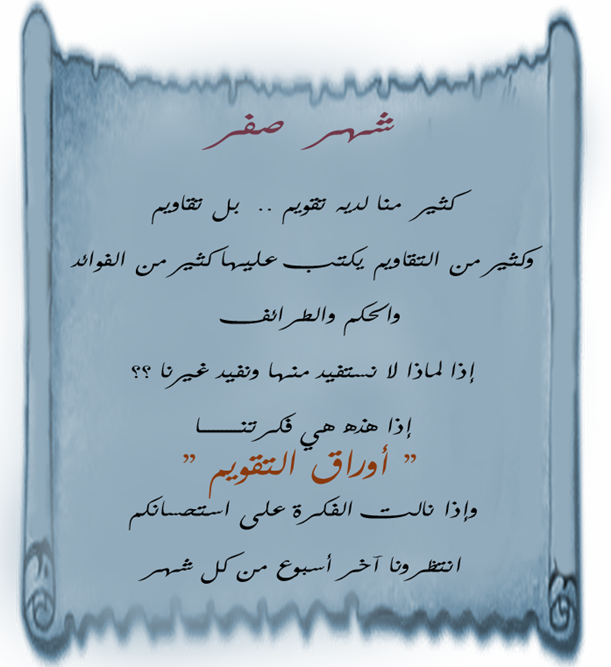 شهر صفر
كثير منا لديه تقويم .. بل تقاويم
وكثير من التقاويم يكتب عليها كثير من الفوائد
والحكم والطرائف
إذا لماذا لا نستفيد منها ونفيد غيرنا ؟؟
إذا هذه هي فكرتنـــا
" أوراق التقويم "
وإذا نالت الفكرة على استحسانكم
انتظرونا آخر أسبوع من كل شهر